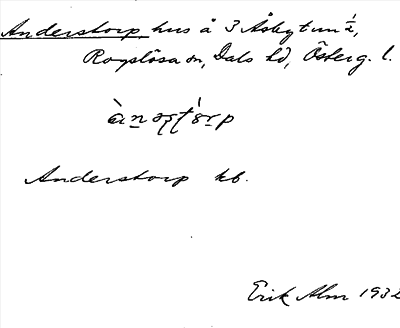 Anderstorp, hus å 3 Åsbytun 1/2,
Rogslösa sn, Dals hd, Österg. l.
Anderstorp kb.
Erik Alm 1932